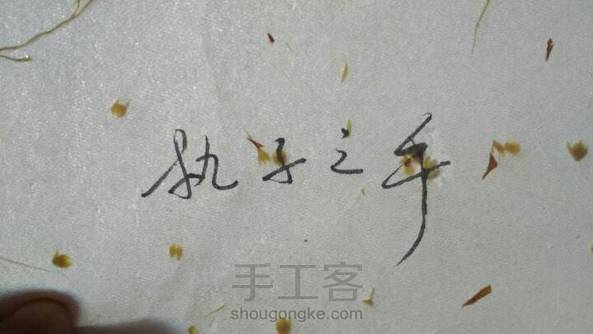 执子之手
手工客
shougongke.com